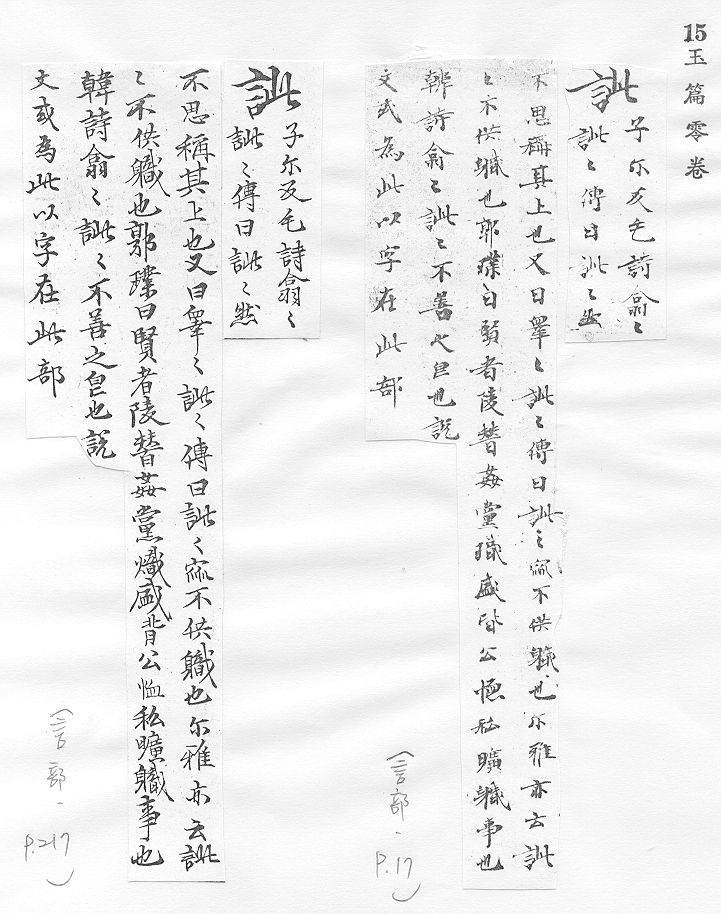 15 玉篇零卷
訿 子尓反毛詩翕〻
訿〻傳曰訿〻然
不思稱其上也又曰睪〻訿〻傳曰訿〻窳不供軄也尓雅亦云訿
〻不供軄也郭璞曰賢者陵替姦黨熾盛背公恤私曠軄事也
韓詩翕〻訿〻不善之皃也說
文或為此以字在此部
(言部.
P.17)
訿 子尓反毛詩翕〻
訿〻傳曰訿〻然
不思稱其上也又曰睪〻訿〻傳曰訿〻窳不供軄也尓雅亦云訿
〻不供軄也郭璞曰賢者陵替姦黨熾盛背公恤私曠軄事也
韓詩翕〻訿〻不善之皃也說
文或為此以字在此部
(言部.
P.217)